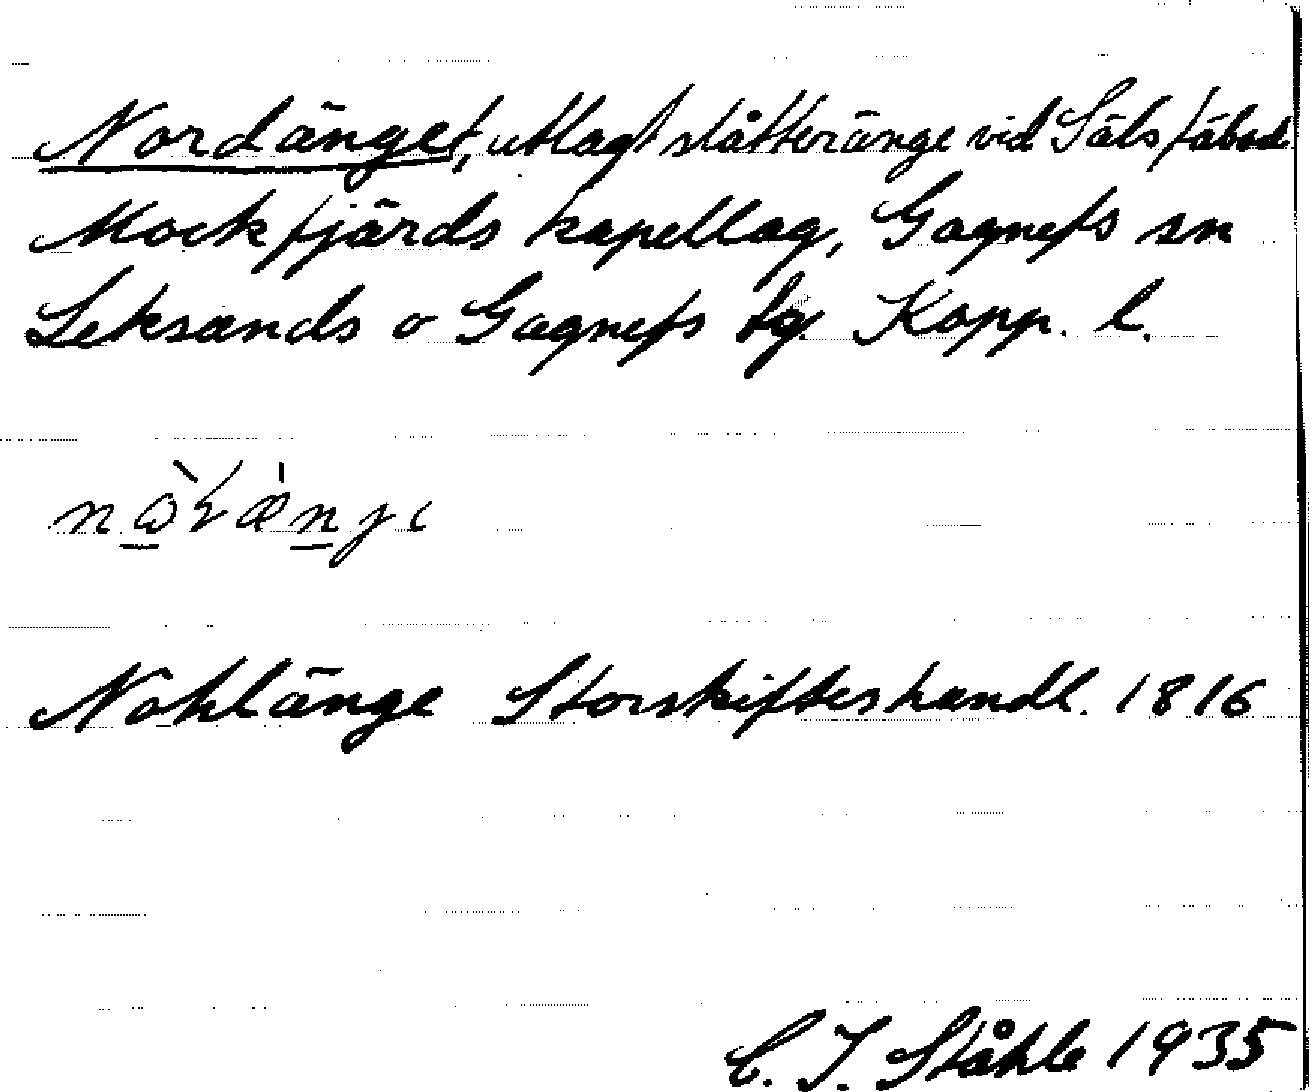 Nordänget, utlagt slåtteränge vid Säls fäbod
Mockfjärds kapellag, Gagnefs sn
Leksands o Gagnefs tg Kopp. l.
Nohlänge Storskifteshandl. 1816
C. I. Ståhle 1935